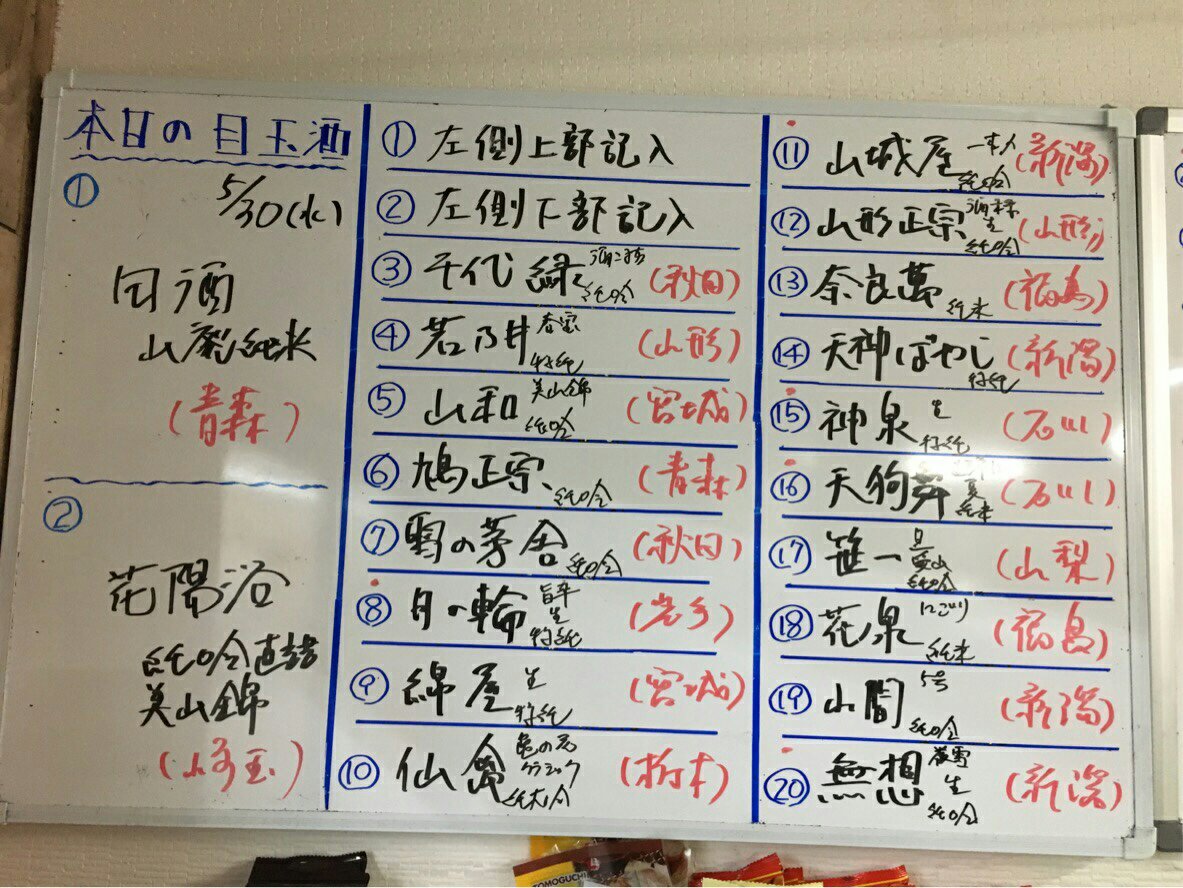 本日の目玉酒
①
5/30(水)
田酒
山廃純米
(青森)
②
花陽浴
純吟直詰
美山錦
(埼玉)
① 左側上部記入
② 左側下部記入
③ 千代緑 純吟 (秋田)
④ 若乃井 特純 (山形)
⑤ 山和 美山錦 純吟 (宮城)
⑥ 鳩正宗 純吟 (青森)
⑦ 雪の茅舎 純吟 (秋田)
⑧ 月の輪 生 特純 (岩手)
⑨ 綿屋 生 特純 (宮城)
⑩ 仙禽 亀の尾 クラシック (栃木)
⑪ 山城屋 一本〆 純吟 (新潟)
⑫ 山形正宗 酒未来 生 純吟 (山形)
⑬ 奈良萬 純米 (福島)
⑭ 天神ばやし 特純 (新潟)
⑮ 神泉 生 特純 (石川)
⑯ 天狗舞 夏 純米 (石川)
⑰ 笹一 旦 愛山 純吟 (山梨)
⑱ 花泉 にごり 純米 (福島)
⑲ 山間 5号 純吟 (新潟)
⑳ 無想 生 純吟 (新潟)
TOMOGUCHI